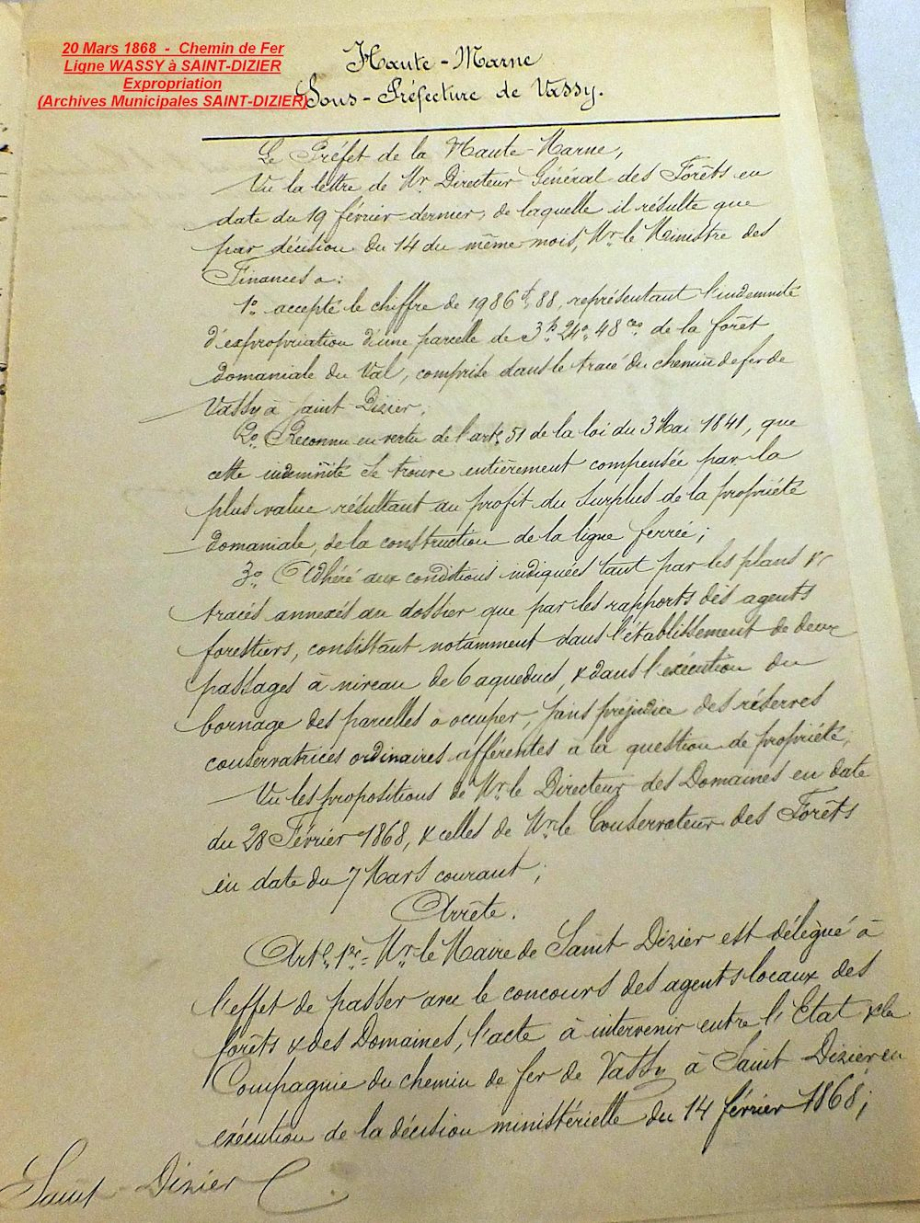 20 Mars 1868 - Chemin de Fer
Ligne WASSY à SAINT-DIZIER
Expropriation
(Archives Municipales SAINT-DIZIER)
Haute-Marne
Sous-Préfecture de Vassy.
Le Préfet de la Haute-Marne,
Vu la lettre de Mr. Directeur Général des Forêts en
date du 19 février dernier, de laquelle il résulte que
par décision du 14 du même mois, Mr. le Ministre des
Finances a:
1o. accepté le chiffre de 1986f,88, représentant l'indemnité
d'expropriation d'une parcelle de 3h. 24a. 48ces. de la forêt
domaniale du Val, comprise dans le tracé du chemin de fer de
Vassy à Saint Dizier,
2o. Reconnu en vertu de l'art. 51 de la loi du 3 Mai 1841, que
cette indemnité se trouve entièrement compensée par la
plus value résultant au profit du surplus de la propriété
domaniale, de la construction de la ligne ferrée;
3o. Adhéré aux conditions indiquées tant par les plans &
tracés annexés au dossier que par les rapports des agents
forestiers, consistant notamment dans l'établissement de deux
passages à niveau de 6 aqueducs, & dans l'exécution du
bornage des parcelles a occuper, sans préjudice des réserves
conservatrices ordinaires afférentes à la question de propriété;
Vu les propositions de Mr. le Directeur des Domaines en date
du 28 Février 1868, & celles de Mr. le Conservateur des Forêts
en date du 7 Mars courant;
Arrête.
Artle. 1er = Mr. le Maire de Saint Dizier est délégué à
l'effet de passer avec le concours des agents locaux des
forêts & des Domaines, l'acte à intervenir entre l'Etat & la
Compagnie du chemin de fer de Vassy à Saint Dizier en
exécution de la décision ministérielle du 14 février 1868;
Saint-Dizier C.